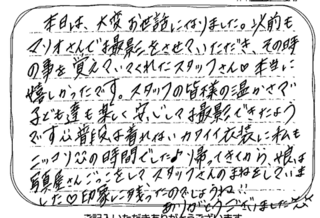 本日は、大変お世話になりました。以前も
マリオさんで撮影をさせていただき、その時
の事を覚えていてくれたスタッフさん♡本当に
嬉しかったです。スタッフの皆様の温かさで
子ども達も楽しく安心して撮影できたよう
です♡普段は着れないカワイイ衣装に私も
ニッコリ♡の時間でした♪帰ってきてから、娘は
写真屋さんごっこをしてスタッフさんのまねをしていま
した♡印象に残ったのでしょうね!!
ありがとうございました
ご記入いただきありがとうございます